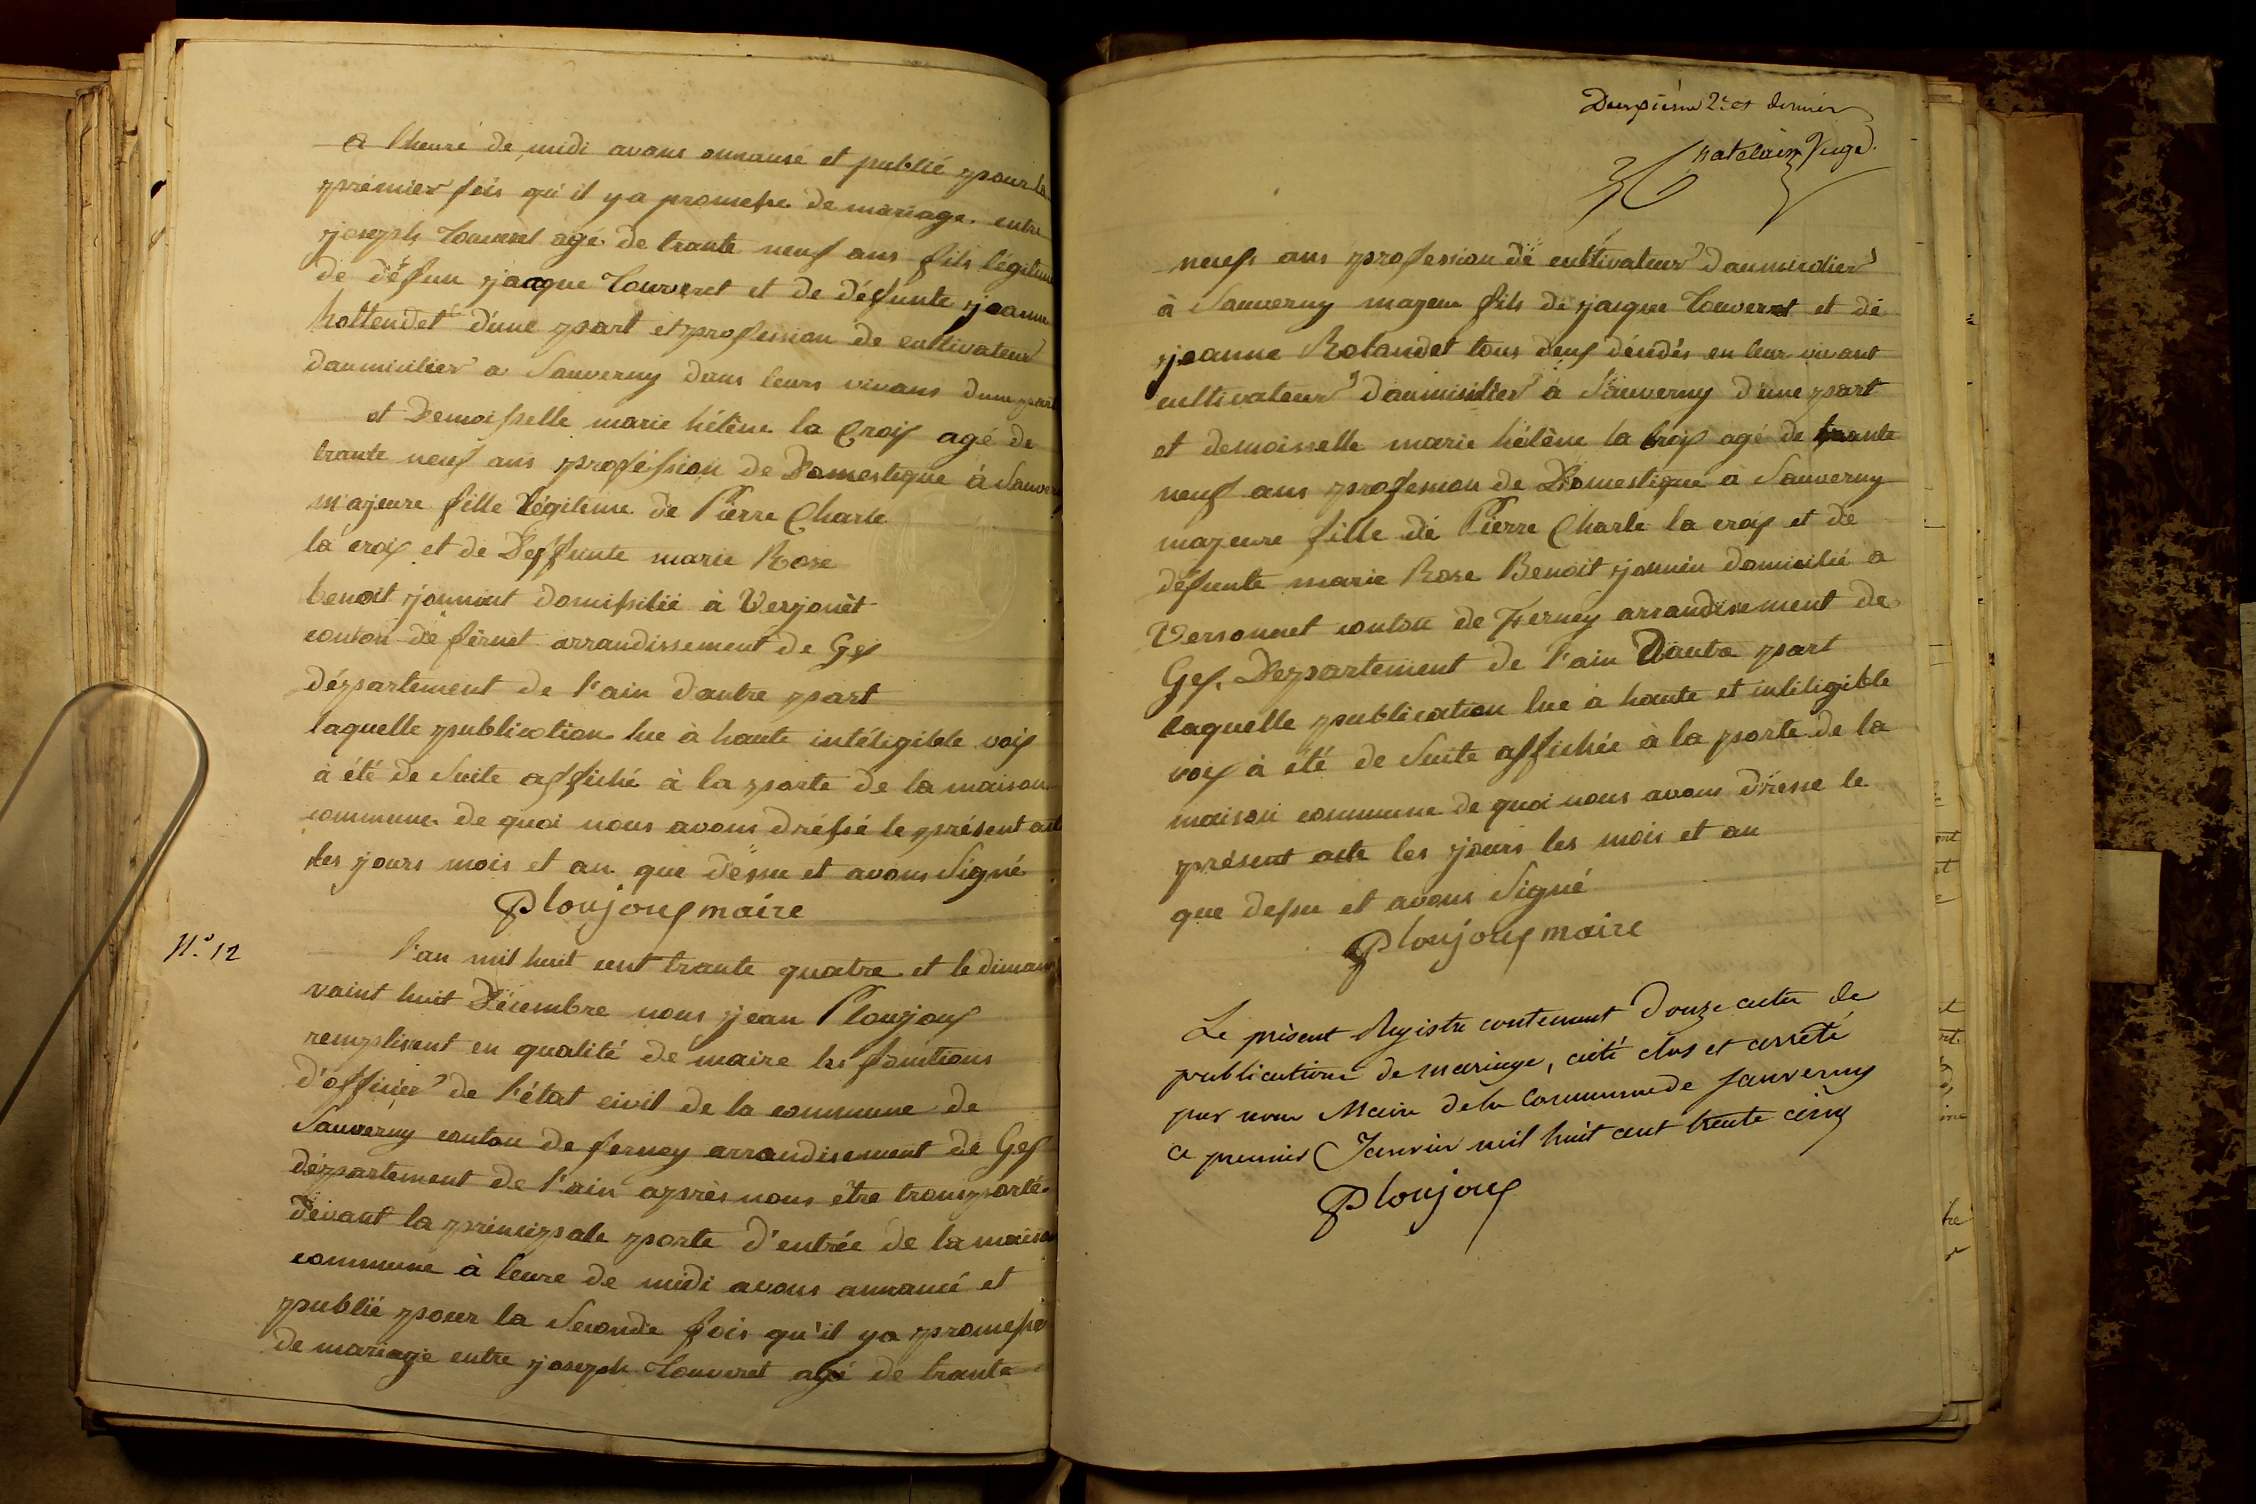 a l'heuré de midi avons annausé et publié pour la
prémier fois qu'il ya promesse de mariage entre
joseph Touveret agé de trante neuf ans fils légitime
de défun jacque Touveret et de défunte jeanne
d'une part et profession de cultivateur
daumicilier a Sauverny dans leurs vivans d'une part
et Demoisselle marie hélène la Croix agé de
trante neuf ans proféssion de Domestique à Sauver
majeure fille légitime de Pierre Charle
la croix et de Deffunte marie Rose
benoit domissilié à
conton de férnet arrandissement de Gex
département de l'ain d'autre part
laquelle publication lue à haute intéligible voix
à été de suite affiché à la porte de la maison
commune de quoi nous avons dréssé le présent act
les jours mois et an que dessu et avons Signé
Ploujoux maire
N.° 12
l'an mil huit cent trante quatre et le diman
vaint huit Décembre nous jean Ploujoux
remplissent en qualité de maire les fonctions
d'officier de l'état civil de la commune de
Sauverny conton de ferney arrandisement de Gex
département de l'ain après nous être transporté
dévant la principale porte d'entrée de la maison
commune à leure de midi avons annancé et
publié pour la Seconde fois qu'il ya promesse
de mariage entre joseph Touveret agé de trante
2e et dernier
Chatelain Juge
neuf ans profession de cultivateur daumicilier
à Sauverny majeur fils de jacque Touveret et de
jeanne Rolandet tous deux décédés en leur vivant
cultivateur daumicilier à Sauverny d'une part
et demoisselle marie hélène la croix agé de trante
neuf ans profession de Domestique à Sauverny
majeure fille dé Pierre Charle la croix et de
défunte marie Rose Benoit domicilié a
Versonnet conton de Ferney arrandisement de
Gex. Département de l'ain D'autre part
laquelle publication lue à haute et intéligible
voix à été de suite affichée à la porte de la
maison commune de quoi nous avons drésse le
présent acte les jours les mois et an
que dessu et avons Signé
Ploujoux maire
Le présent Registre contenant Douze actes de
publications de mariage, a été clos et arrêté
par nous Maire de la Commune de Sauverny
ce premier Janvier mil huit cent trente cinq
Ploujoux